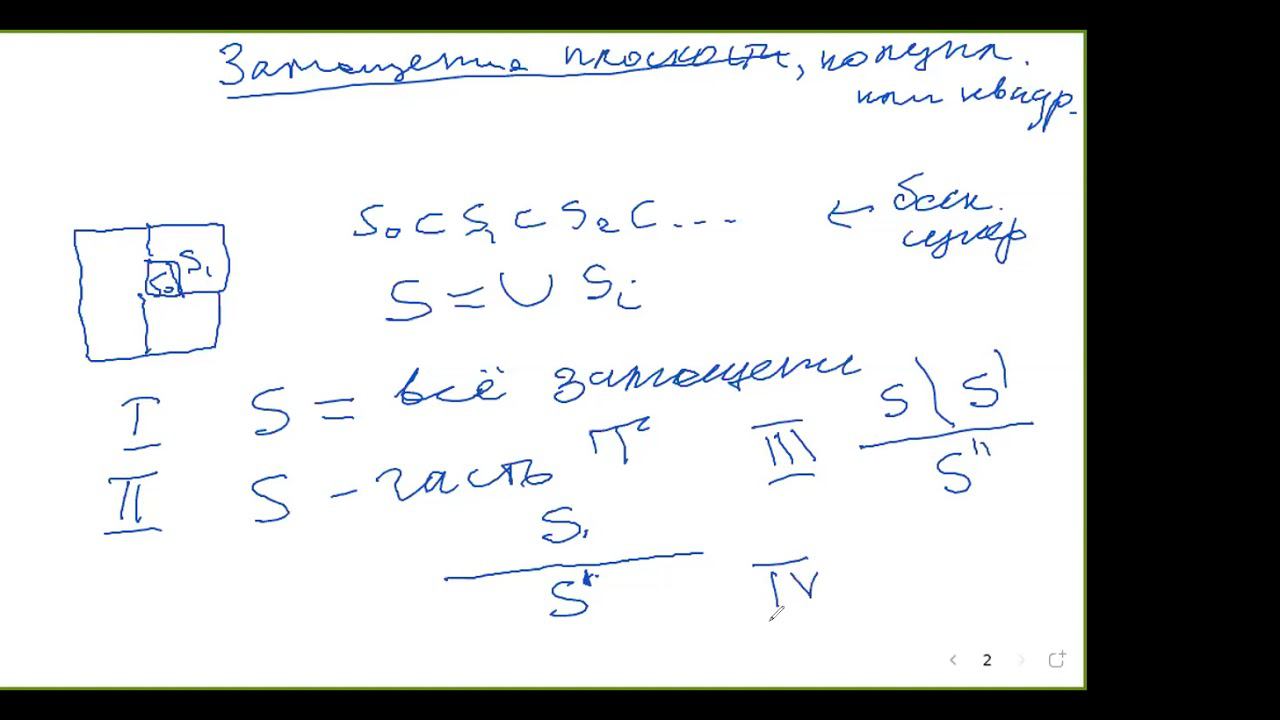 Замощения плоскости, полупл.
или квадр.
S₀ ⊂ S₁ ⊂ S₂ ⊂ ... ← беск.
S₀ S₁
S = ∪ Sᵢ
I S = всё замощение
II S – часть П III S \ S' / S''
S, / S* IV
2